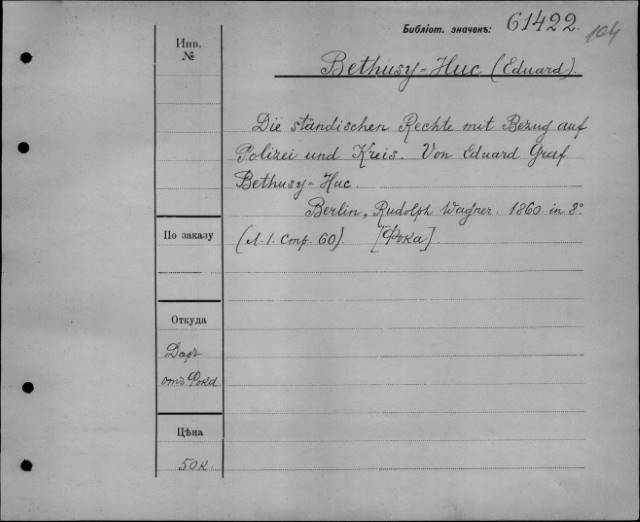 Библіот. значекъ: 61422 104
Инв.
№
Bethusy-Huc (Eduard).
Die ständischen Rechte mit Bezug auf
Polizei und Kreis. Von Eduard Graf
Bethusy-Huc.
Berlin, Rudolph Wagner. 1860 in 8°
(Л. 1. Стр. 60). [Фока].
По заказу
Откуда
Даръ
отъ Фока
Цѣна
50 к.